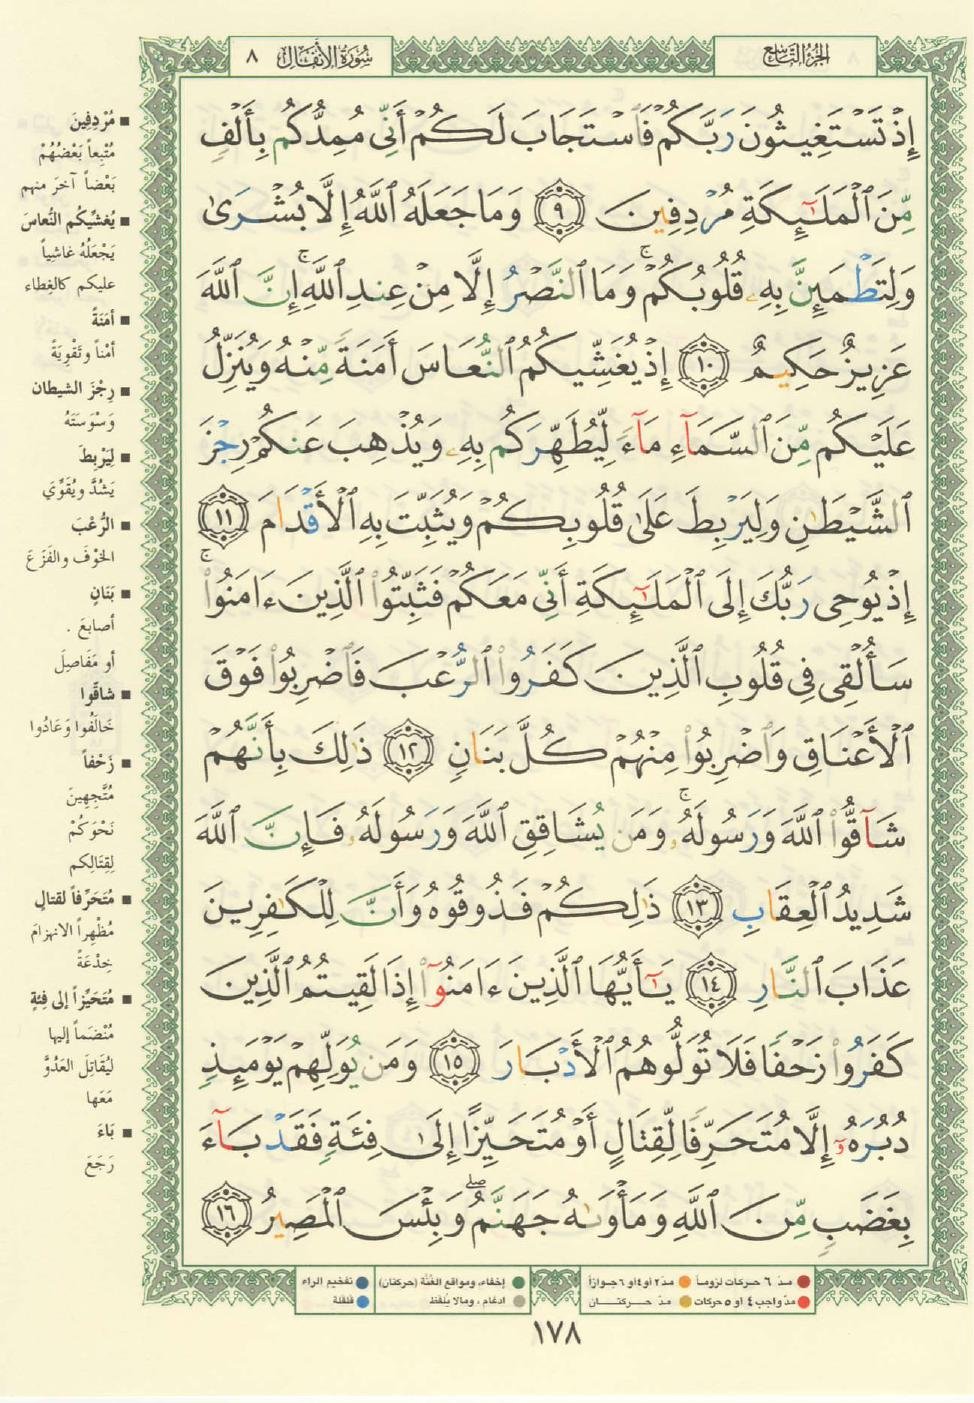 الجزء التاسع
سُورَةُ الأَنفَال ٨
إِذْ تَسْتَغِيثُونَ رَبَّكُمْ فَٱسْتَجَابَ لَكُمْ أَنِّى مُمِدُّكُم بِأَلْفٍ
مِّنَ ٱلْمَلَٰٓئِكَةِ مُرْدِفِينَ ٩ وَمَا جَعَلَهُ ٱللَّهُ إِلَّا بُشْرَىٰ
وَلِتَطْمَئِنَّ بِهِۦ قُلُوبُكُمْ ۚ وَمَا ٱلنَّصْرُ إِلَّا مِنْ عِندِ ٱللَّهِ ۚ إِنَّ ٱللَّهَ
عَزِيزٌ حَكِيمٌ ١٠ إِذْ يُغَشِّيكُمُ ٱلنُّعَاسَ أَمَنَةً مِّنْهُ وَيُنَزِّلُ
عَلَيْكُم مِّنَ ٱلسَّمَآءِ مَآءً لِّيُطَهِّرَكُم بِهِۦ وَيُذْهِبَ عَنكُمْ رِجْزَ
ٱلشَّيْطَٰنِ وَلِيَرْبِطَ عَلَىٰ قُلُوبِكُمْ وَيُثَبِّتَ بِهِ ٱلْأَقْدَامَ ١١
إِذْ يُوحِى رَبُّكَ إِلَى ٱلْمَلَٰٓئِكَةِ أَنِّى مَعَكُمْ فَثَبِّتُوا۟ ٱلَّذِينَ ءَامَنُوا۟ ۚ
سَأُلْقِى فِى قُلُوبِ ٱلَّذِينَ كَفَرُوا۟ ٱلرُّعْبَ فَٱضْرِبُوا۟ فَوْقَ
ٱلْأَعْنَاقِ وَٱضْرِبُوا۟ مِنْهُمْ كُلَّ بَنَانٍ ١٢ ذَٰلِكَ بِأَنَّهُمْ
شَآقُّوا۟ ٱللَّهَ وَرَسُولَهُۥ ۚ وَمَن يُشَاقِقِ ٱللَّهَ وَرَسُولَهُۥ فَإِنَّ ٱللَّهَ
شَدِيدُ ٱلْعِقَابِ ١٣ ذَٰلِكُمْ فَذُوقُوهُ وَأَنَّ لِلْكَٰفِرِينَ
عَذَابَ ٱلنَّارِ ١٤ يَٰٓأَيُّهَا ٱلَّذِينَ ءَامَنُوٓا۟ إِذَا لَقِيتُمُ ٱلَّذِينَ
كَفَرُوا۟ زَحْفًا فَلَا تُوَلُّوهُمُ ٱلْأَدْبَارَ ١٥ وَمَن يُوَلِّهِمْ يَوْمَئِذٍ
دُبُرَهُۥٓ إِلَّا مُتَحَرِّفًا لِّقِتَالٍ أَوْ مُتَحَيِّزًا إِلَىٰ فِئَةٍ فَقَدْ بَآءَ
بِغَضَبٍ مِّنَ ٱللَّهِ وَمَأْوَىٰهُ جَهَنَّمُ ۖ وَبِئْسَ ٱلْمَصِيرُ ١٦
■ مُرْدِفِينَ
مُتْبِعاً بَعْضُهُمْ
بَعْضاً آخرَ منهم
■ يُغَشِّيكُم النُّعاسَ
يَجْعَلُهُ غاشِياً
عليكم كالغِطاء
■ أمَنَةً
أمْناً وتَقْوِيَةً
■ رِجْزَ الشيطان
وَسْوَسَتَهُ
■ لِيَرْبِطَ
يَشُدَّ ويُقَوِّيَ
■ الرُّعْبَ
الخَوْفَ والفَزَعَ
■ بَنَانٍ
أصابعَ .
أو مَفَاصِلَ
■ شاقّوا
خَالَفُوا وَعَادُوا
■ زَحْفاً
مُتَّجِهِينَ
نَحْوَكُمْ
لِقِتَالِكم
■ مُتَحَرِّفاً لقتالٍ
مُظْهِراً الانهزامَ
خِدْعَةً
■ مُتَحَيِّزاً إلى فِئةٍ
مُنْضَماً إليها
لِيُقَاتِلَ العَدُوَّ
مَعَها
■ بَاءَ
رَجَعَ
مدّ ٦ حركات لزوماً مدّ ٢ أو ٤ أو ٦ جوازاً إخفاء، ومواقع الغُنَّة (حركتان) تفخيم الراء
مدّ واجب ٤ أو ٥ حركات مدّ حركتان ادغام ، ومالا يُلفَظ قلقلة
١٧٨